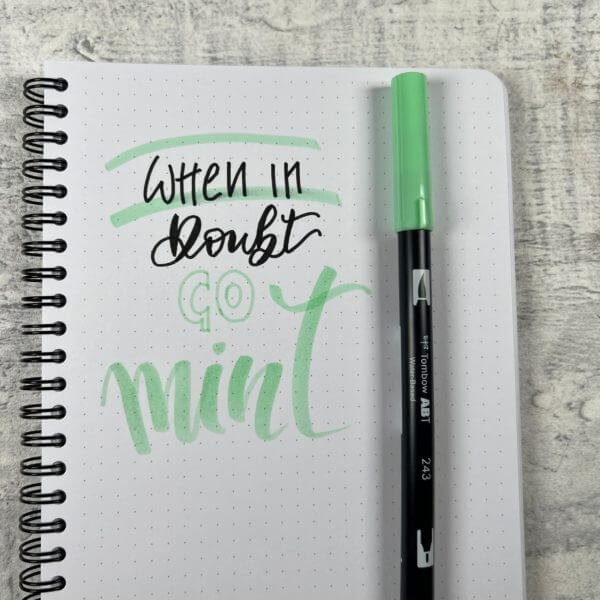 WHen in
Doubt
GO
mint
Tombow ABT
Water-Based
243